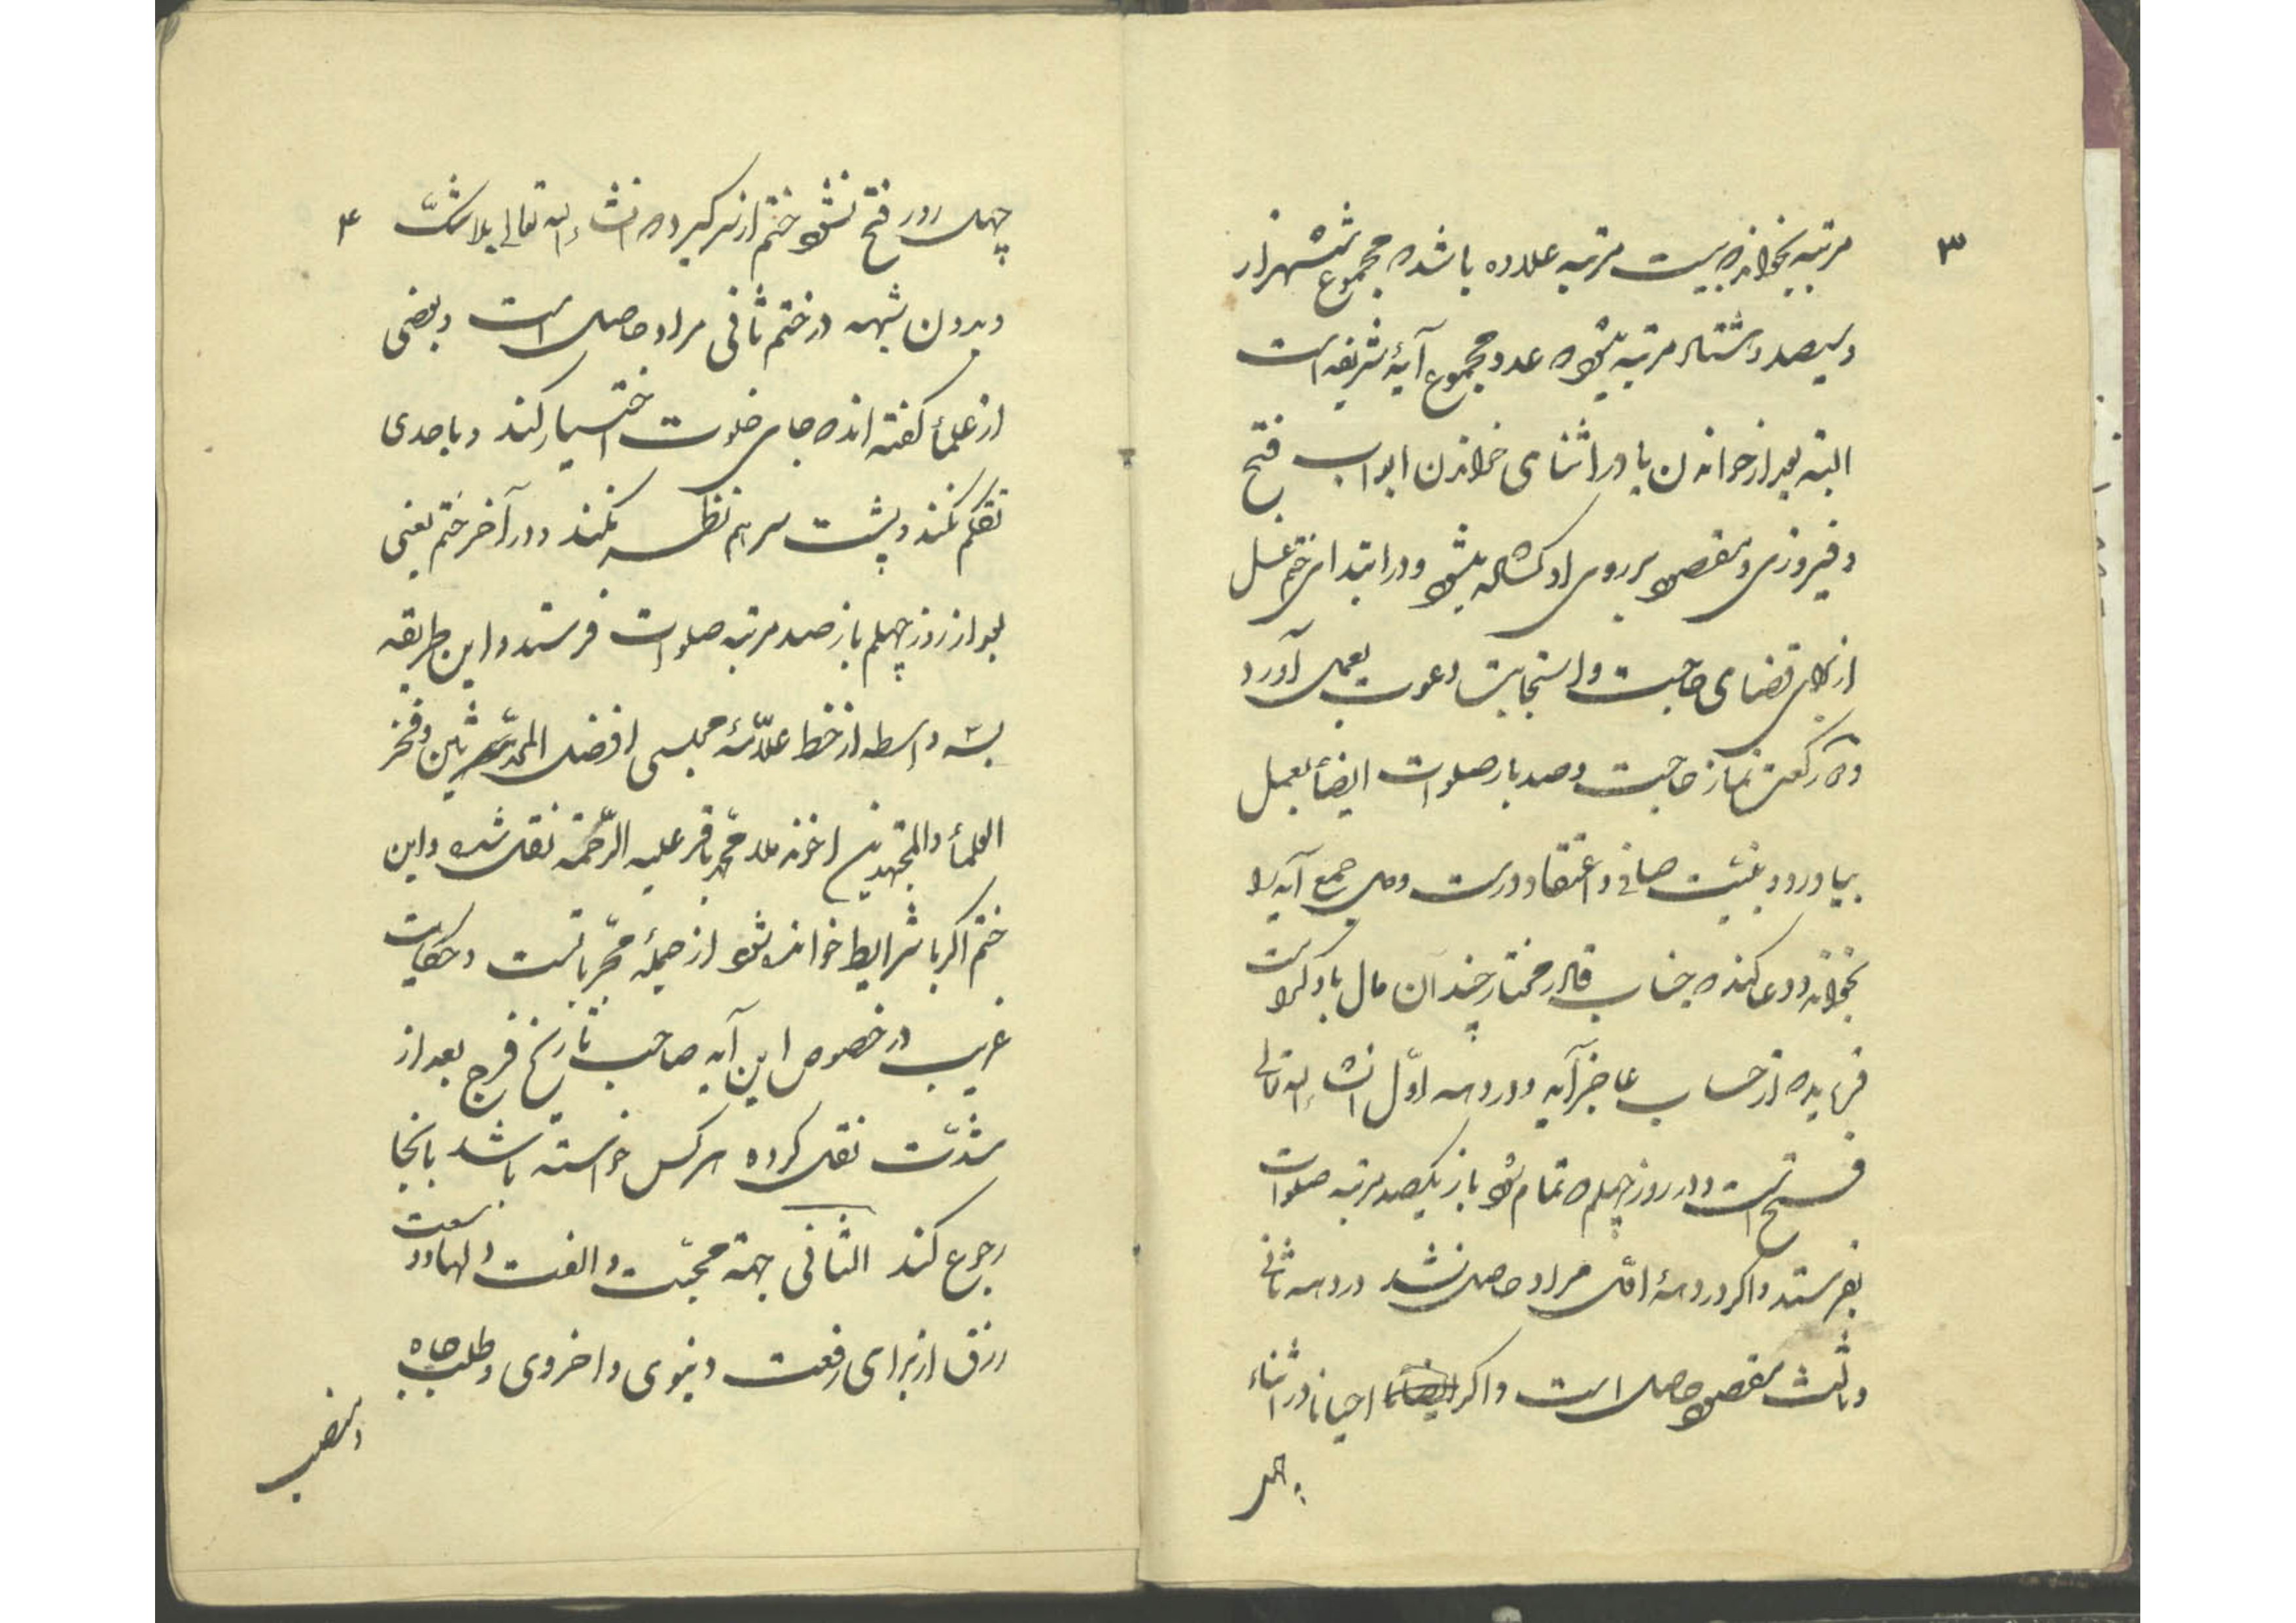 ۳
مرتبه بخواند که بیست مرتبه علاوه باشد که مجموع ششهزار
و سیصد و هشتاد مرتبه بشود که عدد مجموع آیهٔ شریفه است
البته بعد از خواندن یا در اثنای خواندن ابواب فتح
و فیروزی و مقصود بر روی او گشاده بشود و در ابتدای ختم غسل
از برای قضای حاجت و استجابت دعوت بعمل آورد
و دو رکعت نماز حاجت و صد بار صلوات ایضاً بعمل
بیاورد و بنیت صافی و اعتقاد درست و دل جمع آیه را
بخواند و دعا کند که جناب قادر مختار چندان مال باو کرامت
فرماید که از حساب عاجز آید و در دهه اوّل انشاء الله تعالی
فتح است و در روز چهلم که تمام شود باز یکصد مرتبه صلوات
بفرستد و اگر در دههٔ اوّل مراد حاصل نشد در دهه ثانی
و ثالث مقصود حاصل است و اگر احیاناً در اثناء
چهل
۴
چهل روز فتح نشود ختم از سر گیرد که انشاء الله تعالی بلا شکّ
و بدون شبهه در ختم ثانی مراد حاصل است و بعضی
از علمأ گفته اند که جای خلوت اختیار کند و با احدی
تکلم نکند و پشت سر هم نظر نکند و در آخر ختم یعنی
بعد از روز چهلم باز صد مرتبه صلوات فرستد و این طریقه
بسه واسطه از خط علّامهٔ مجلسی افضل المحدّثین و فخر
العلمأ و المجتهدین اخوند ملا محمّد باقر علیه الرّحمة نقل شده و این
ختم اگر با شرایط خوانده شود از جملهٔ مجرّباتست و حکایات
غریب در خصوص این آیه صاحب تاریخ فرج بعد از
شدّت نقل کرده هر کس خواسته باشد بانجا
رجوع کند الثانی جهة محبّت و الفت و وسعت
رزق از برای رفعت دنیوی و اخروی و طلب جاه
و منصب